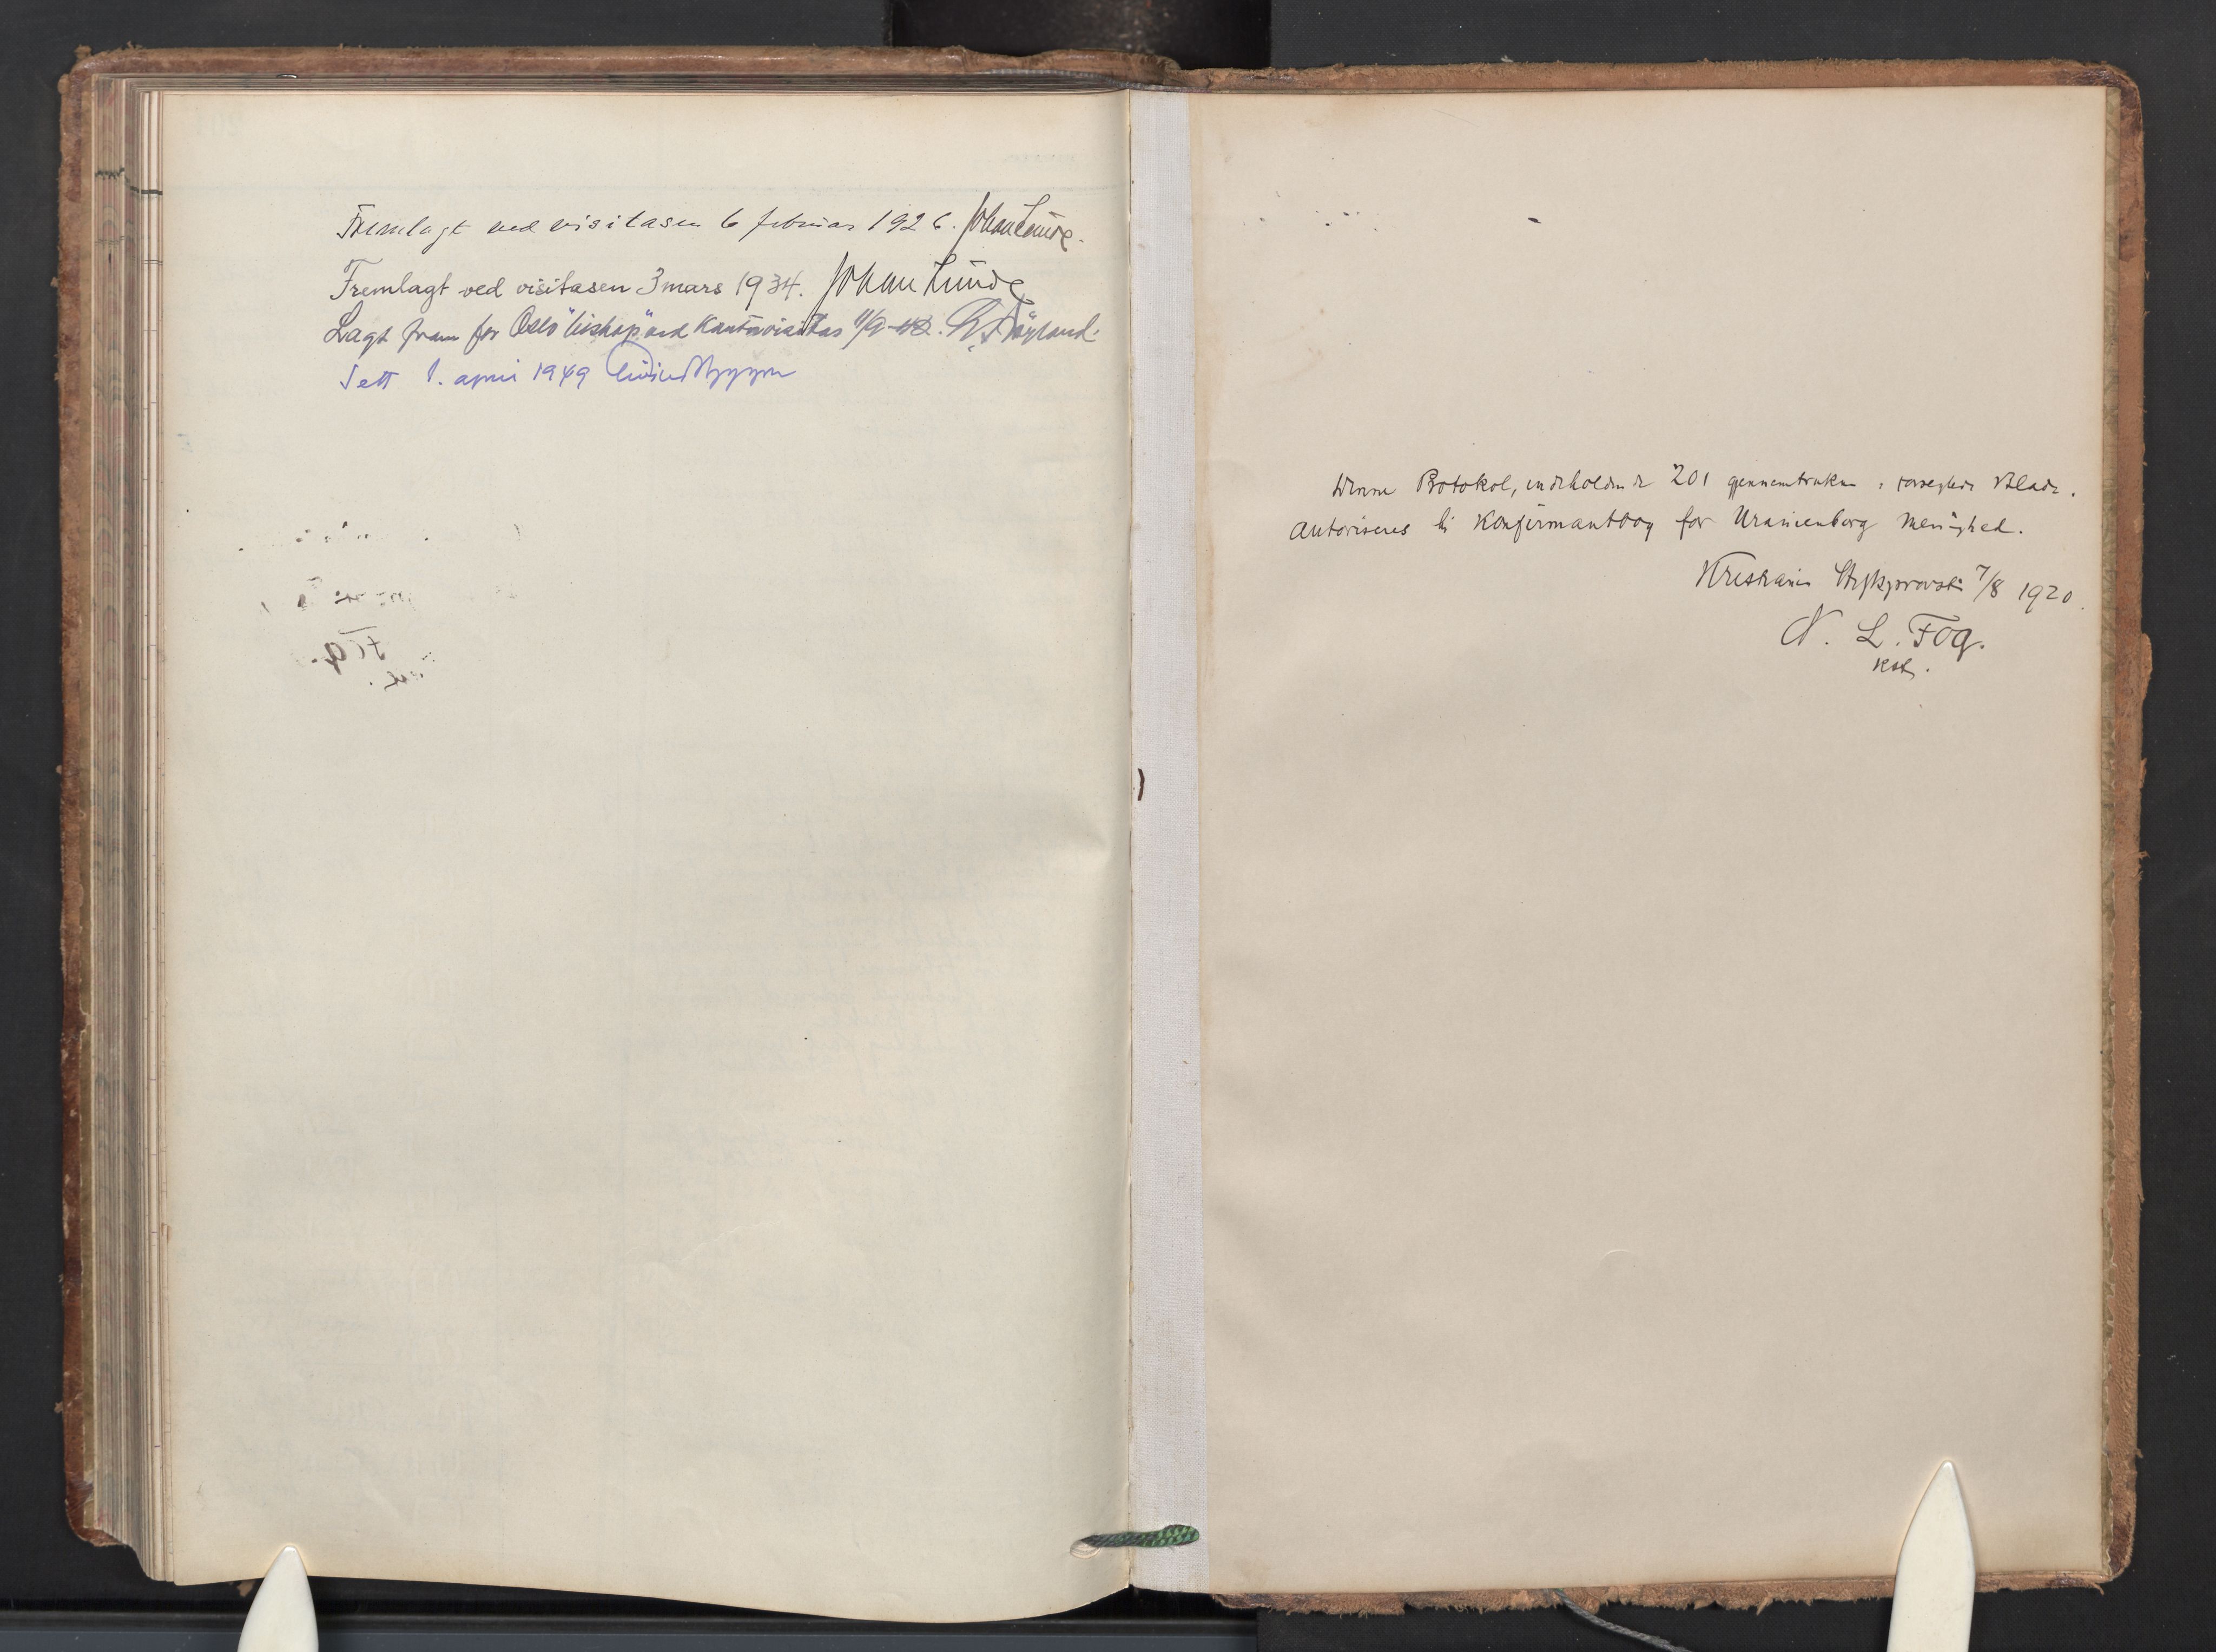 Fremlagt ved visitasen 6 februar 1926. Johan Lunde.
Fremlagt ved visitasen 3 mars 1934. Johan Lunde
Lagt fram for Oslo "biskop" ved visitas 11/9-42.
Sett 1. april 1949
Denne Protokol, indeholdende 201 gjennemtrukne forseglede Blade.
Autoriseres til Konfirmantbog for Uranienborg Menighed.
Kristiania Stiftsprovsti 7/8 1920.
N. L. Fog.
kst.